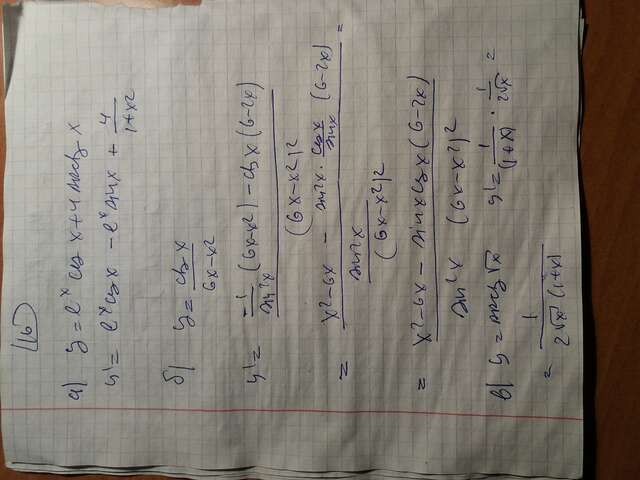 16
а) y = e^x cos x + 4 arctg x
y' = e^x cos x - e^x sin x + 4/(1+x²)
б) y = ctg x / (6x-x²)
y' = (-1/sin²x (6x-x²) - ctg x (6-2x)) / (6x-x²)²
= ((x²-6x - sin²x · cos x/sin x (6-2x)) / sin²x) / (6x-x²)² =
= (x²-6x - sin x cos x (6-2x)) / (sin²x (6x-x²)²)
в) y = arctg √x y' = 1/(1+x) · 1/(2√x) =
= 1/(2√x (1+x))